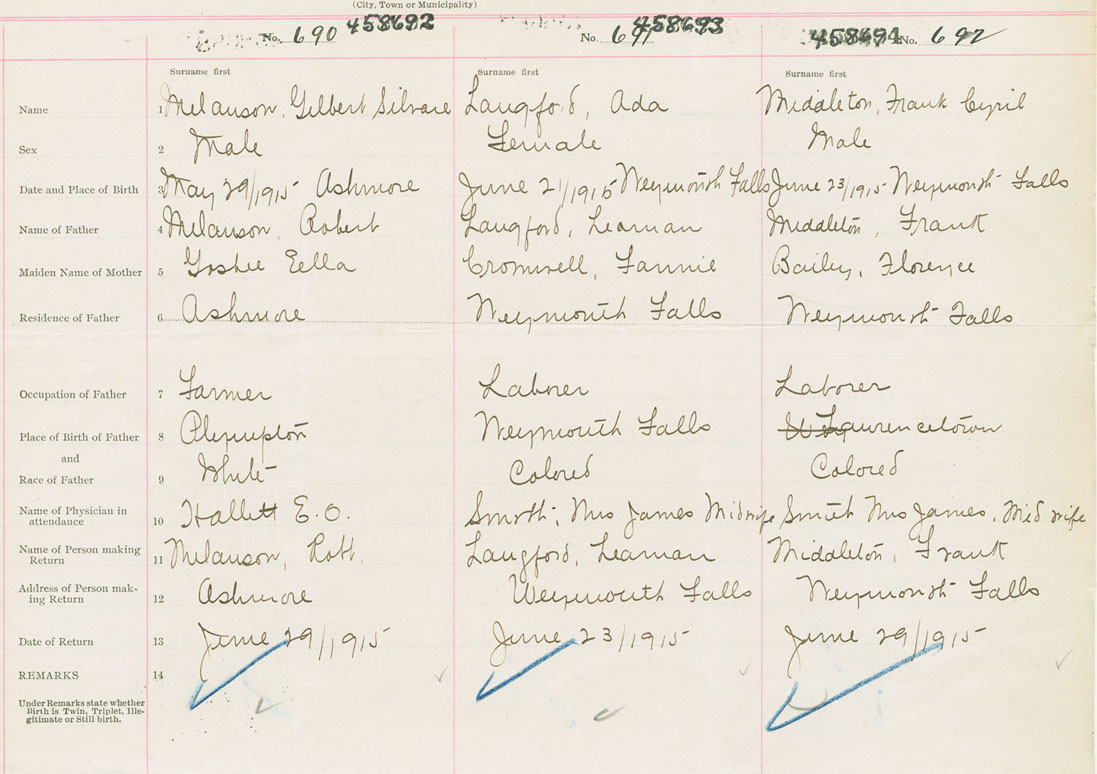 (City, Town or Municipality)
No. 690 458692 No. 691 458693 458694 No. 692
Surname first Surname first Surname first
Name 1 Melanson, Gilbert Silvare Langford, Ada Middleton, Frank Cyril
Sex 2 Male Female Male
Date and Place of Birth 3 May 29/1915 Ashmore June 21/1915 Weymouth Falls June 23/1915 Weymouth Falls
Name of Father 4 Melanson, Robert Langford, Leaman Middleton, Frank
Maiden Name of Mother 5 Eella Cromwell, Fannie Bailey, Florence
Residence of Father 6 Ashmore Weymouth Falls Weymouth Falls
Occupation of Father 7 Farmer Laborer Laborer
Place of Birth of Father 8 Plympton Weymouth Falls Lawrencetown
and
Race of Father 9 White Colored Colored
Name of Physician in
attendance 10 Hallett E.O. Smith, Mrs James Midwife Smith Mrs James, Mid wife
Name of Person making
Return 11 Melanson, Robt. Langford, Leaman Middleton, Frank
Address of Person mak-
ing Return 12 Ashmore Weymouth Falls Weymouth Falls
Date of Return 13 June 29/1915 June 23/1915 June 29/1915
REMARKS 14
Under Remarks state whether
Birth is Twin, Triplet, Ille-
gitimate or Still birth.